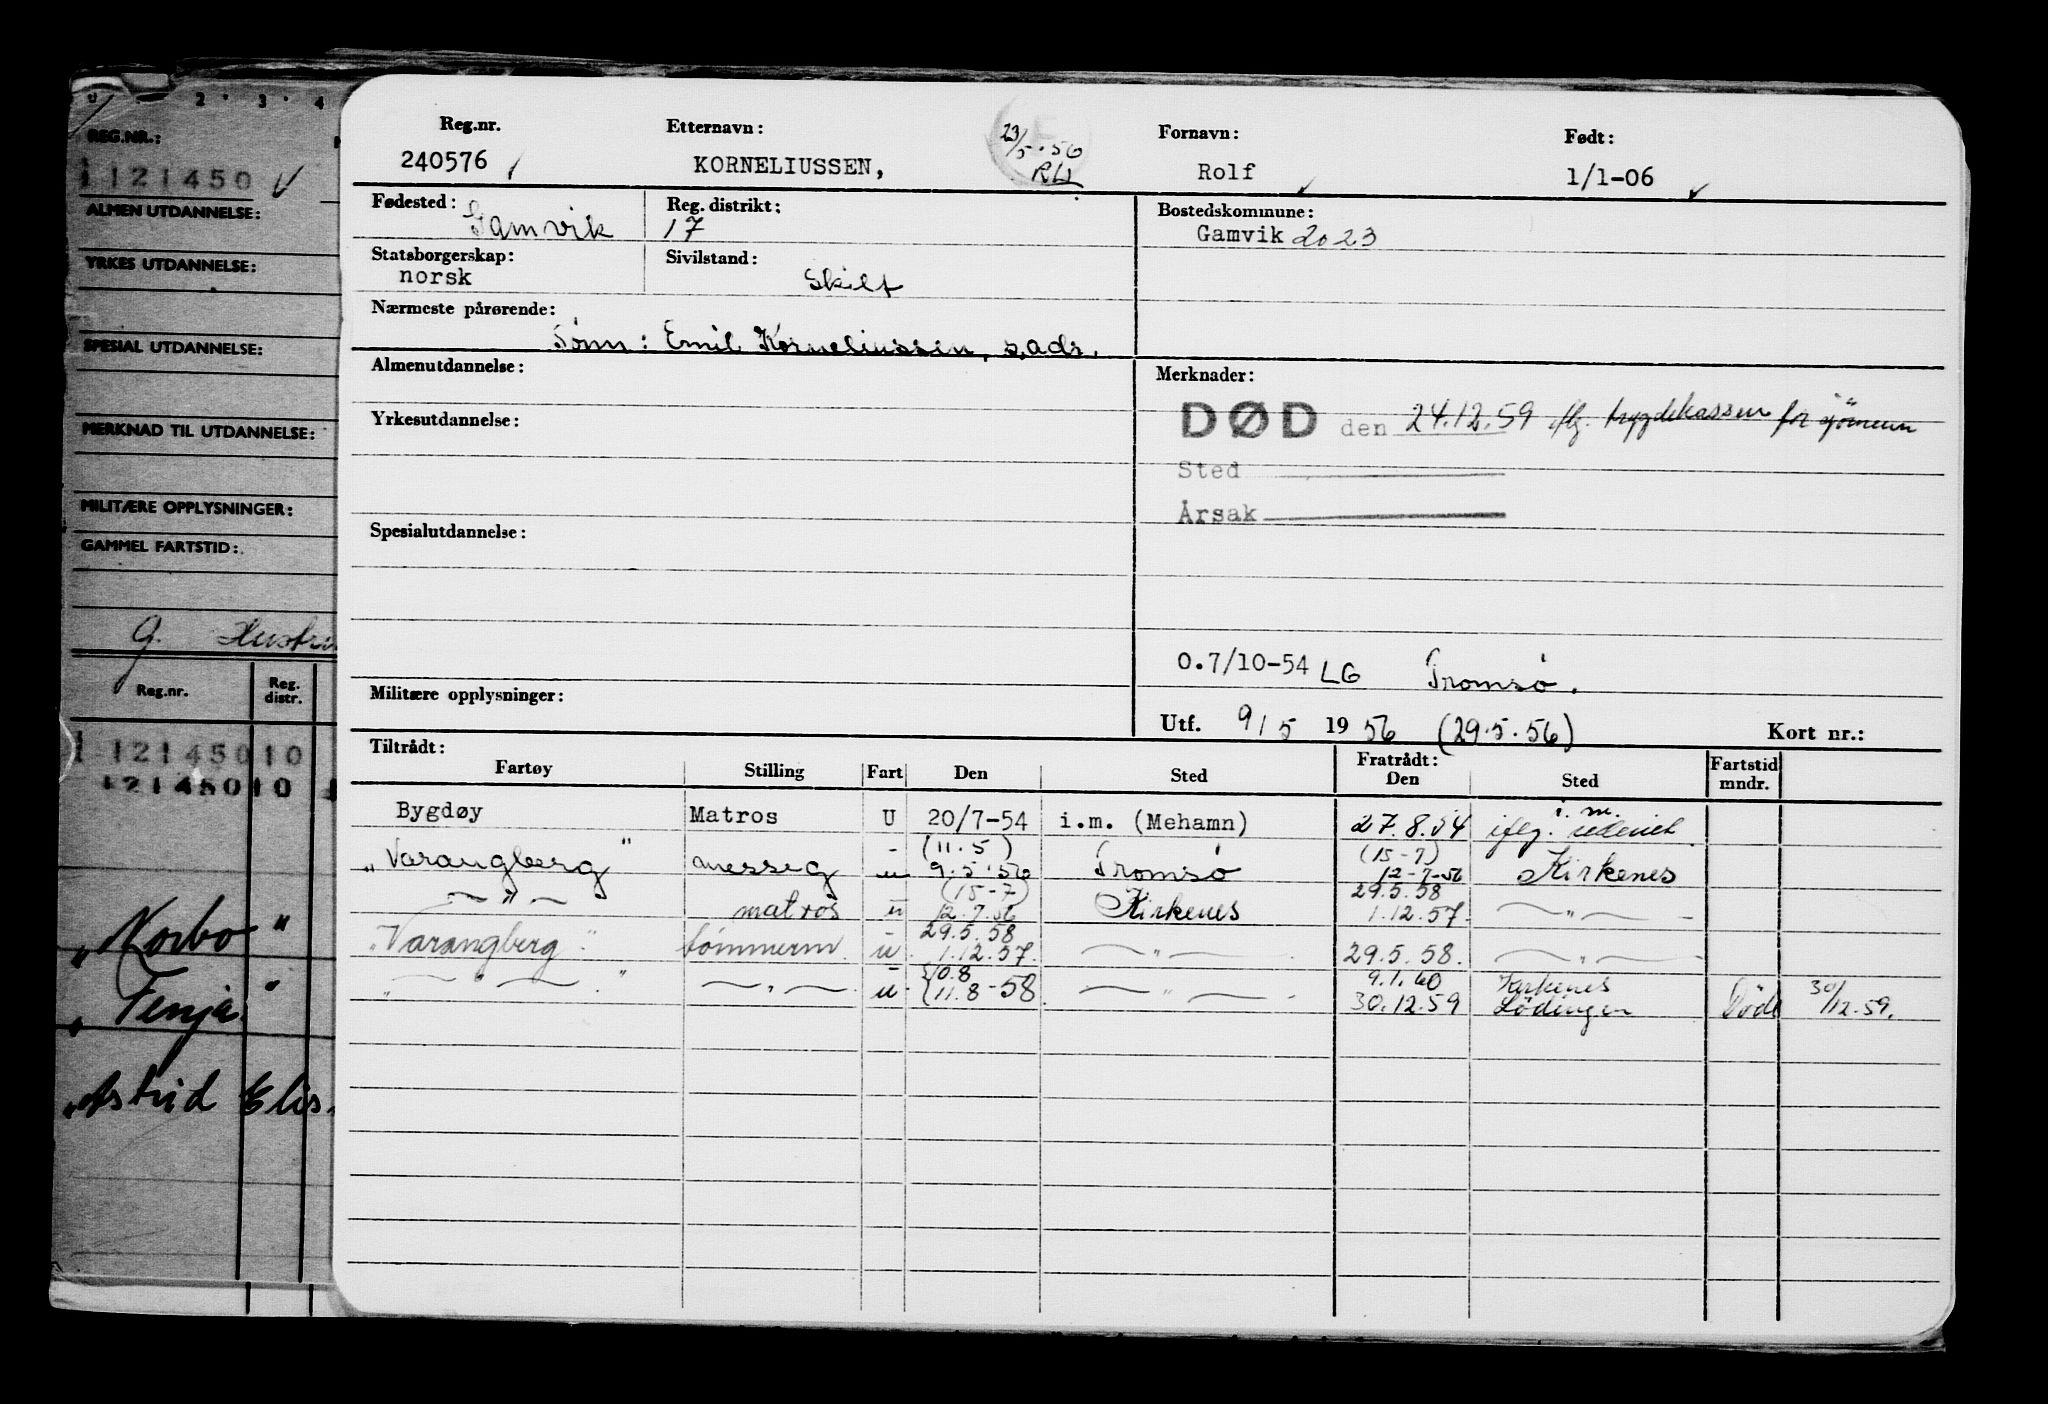 U 2 · 3 · 4
REG.NR.:
121450
ALMEN UTDANNELSE:
YRKES UTDANNELSE:
SPESIAL UTDANNELSE:
MERKNAD TIL UTDANNELSE:
MILITÆRE OPPLYSNINGER:
GAMMEL FARTSTID:
g. Hustru
Reg.nr. Reg. distr.
1 12145010
12145010
„Korbo"
„Tenja"
„Astrid Elis
Reg.nr. Etternavn: Fornavn: Født:
23/5.56
240576 KORNELIUSSEN, Rolf 1/1-06
Fødested: Gamvik Reg. distrikt: 17 Bostedskommune:
Gamvik 2023
Statsborgerskap: Sivilstand:
norsk Skilt
Nærmeste pårørende:
Sønn: Emil Korneliussen, s.ads.
Almenutdannelse: Merknader:
DØD den 24.12.59 iflg. trygdekassen for sjømenn
Yrkesutdannelse:
Sted
Årsak
Spesialutdannelse:
0.7/10-54 LG Tromsø.
Militære opplysninger:
Utf. 9/5 1956 (29.5.56) Kort nr.:
Tiltrådt: Fratrådt: Fartstid
Fartøy Stilling Fart Den Sted Den Sted mndr.
Bygdøy Matros U 20/7-54 i.m. (Mehamn) 27.8.54 i.m. iflg. rederiet
(11.5) (15-7)
„Varangberg" messeg u 9.5.56 Tromsø 12-7-56 Kirkenes
(15-7) 29.5.58
— " — matros u 12.7.56 Kirkenes 1.12.57. — " —
29.5.58
„Varangberg" tømmerm. u 1.12.57. — " — 29.5.58. — " —
10.8 9.1.60 Kirkenes
„ — " — " — " — u 11.8-58 — " — 30.12.59 Lödingen Död 30/12.59.